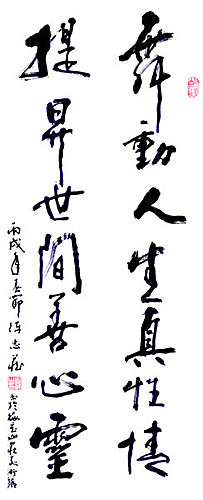 舞動人生真性情
提昇世間善心靈
丙戌年春節陳忠藏